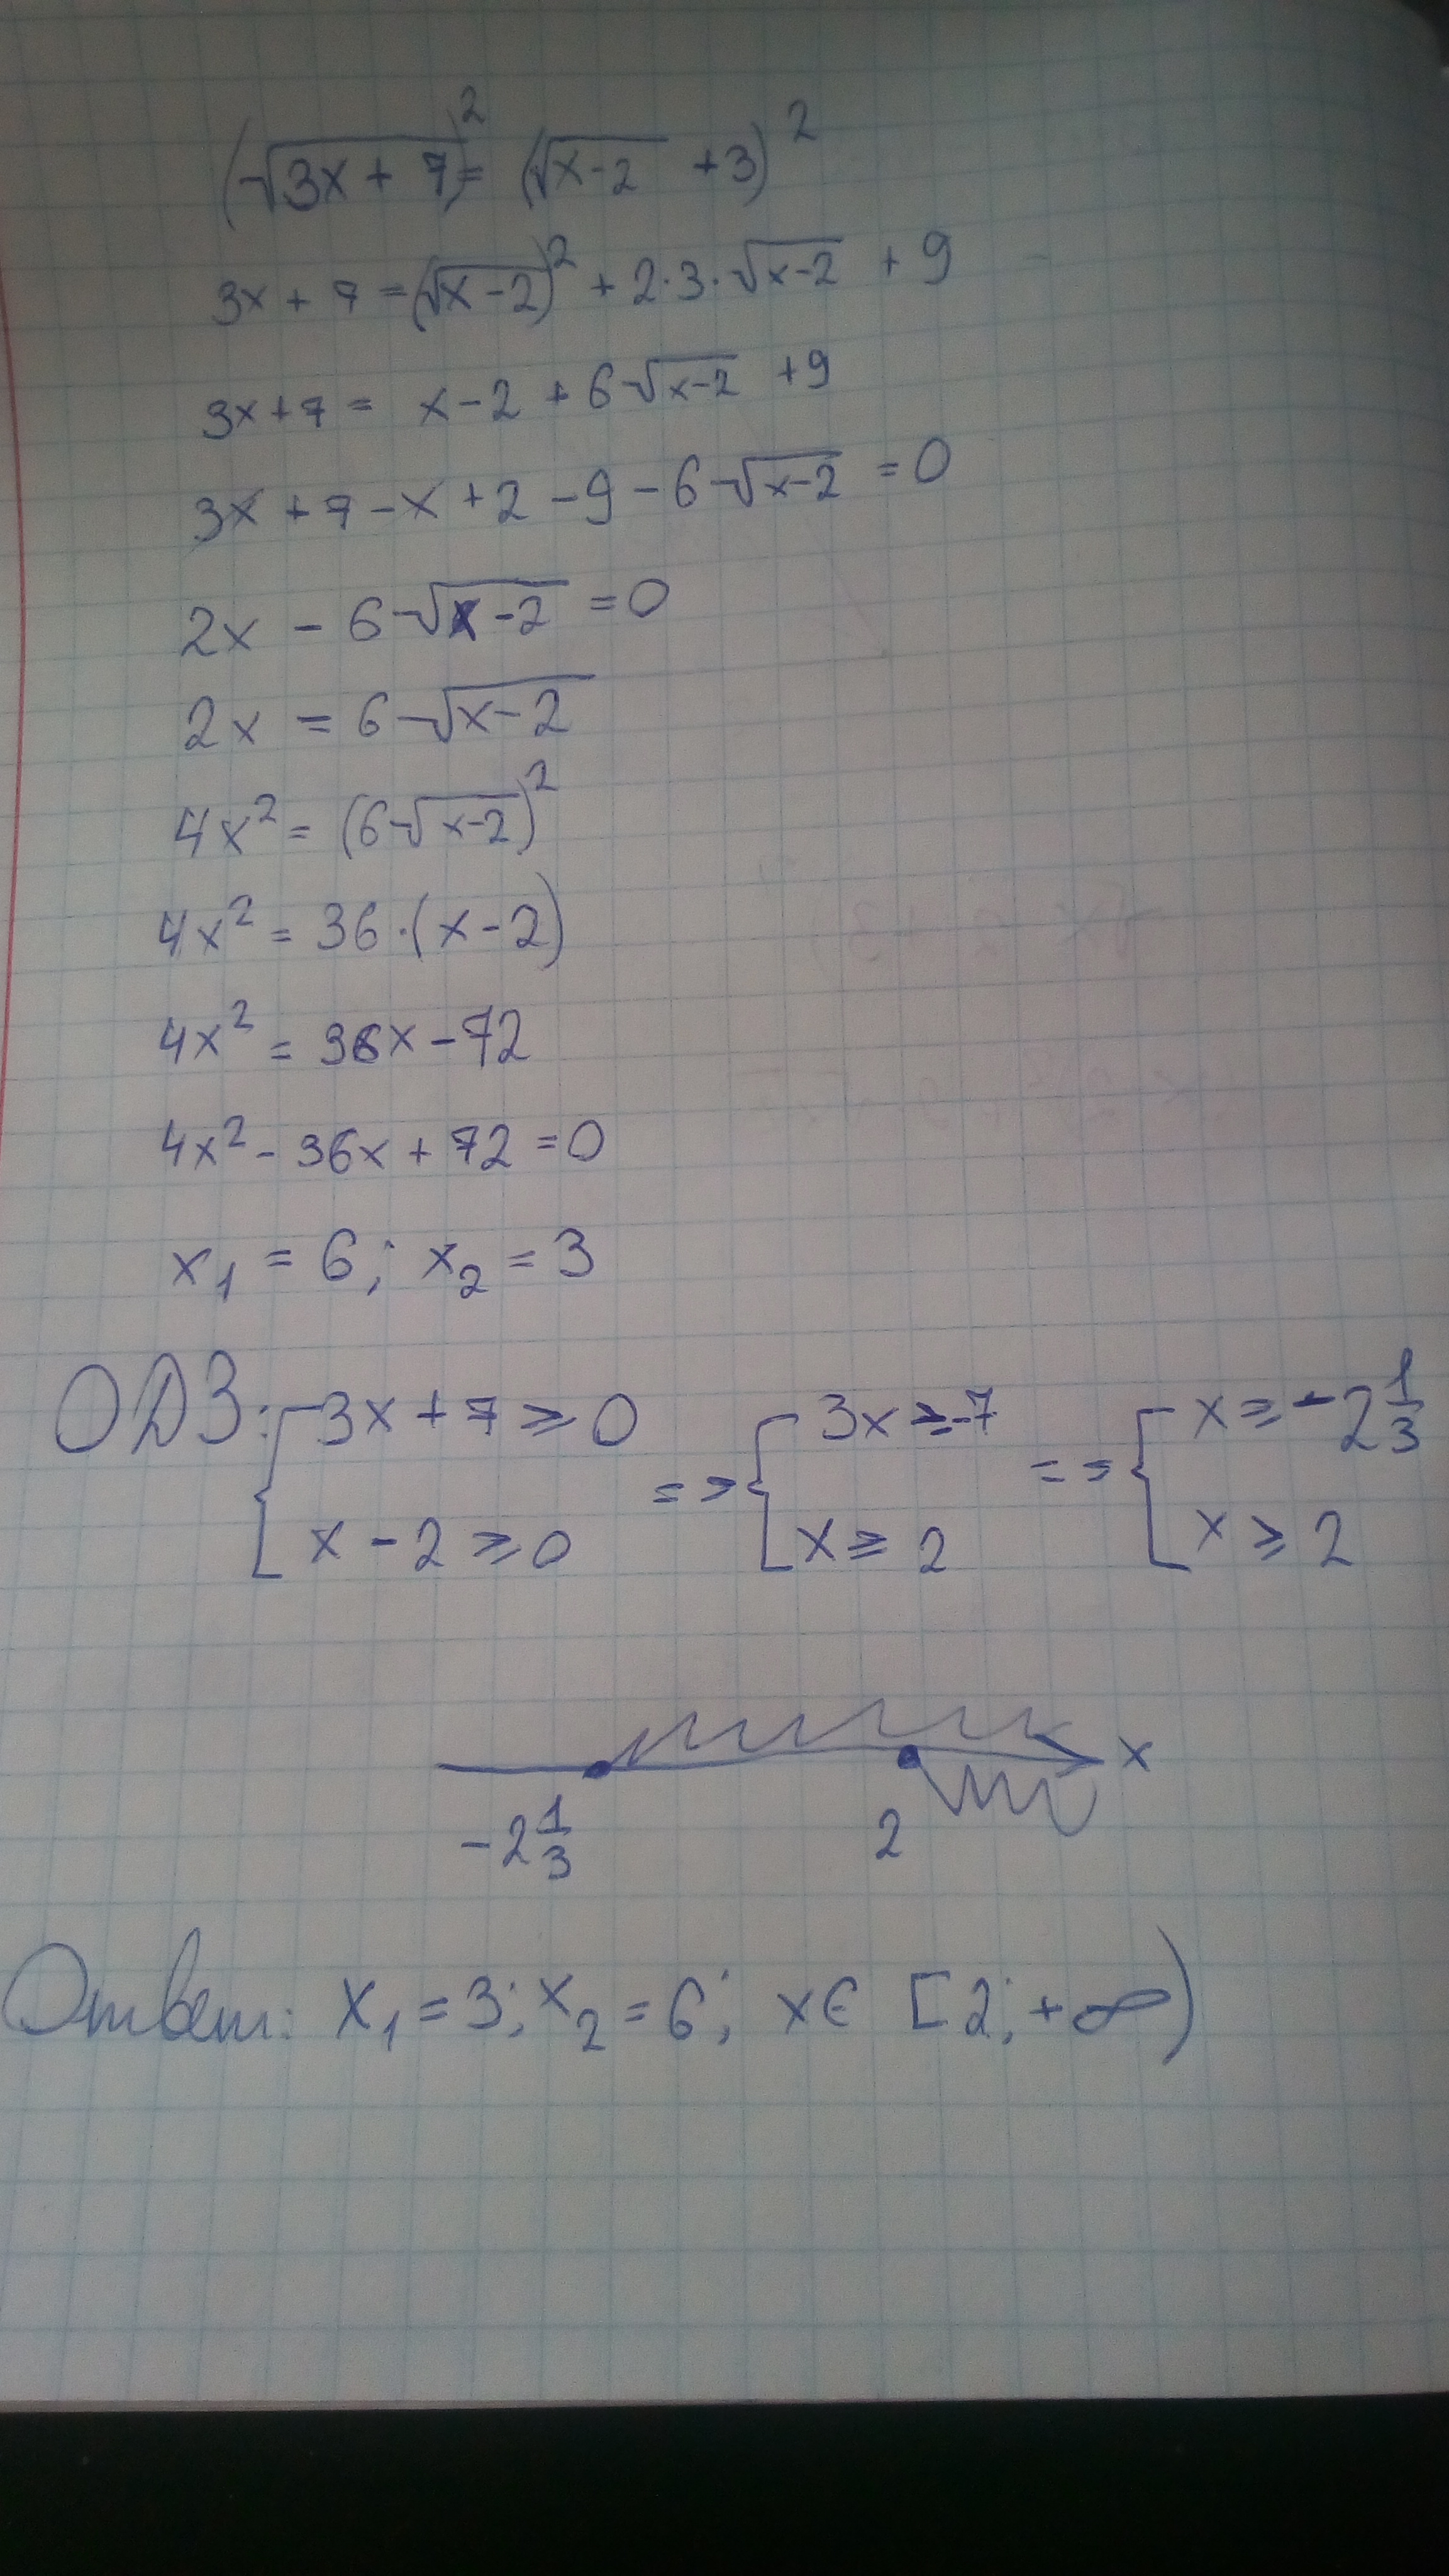 (√3x + 7)² = (√x-2 + 3)²
3x + 7 = (√x-2)² + 2·3·√x-2 + 9
3x+7 = x-2 + 6√x-2 +9
3x +7 -x +2 -9 -6√x-2 =0
2x - 6√x-2 =0
2x = 6√x-2
4x² = (6√x-2)²
4x² = 36·(x-2)
4x² = 36x-72
4x² - 36x + 72 =0
x₁ = 6; x₂ = 3
ОДЗ: { 3x+7 ≥ 0 => { 3x ≥ -7 => { x ≥ -2 1/3
x - 2 ≥ 0 x ≥ 2 x ≥ 2
x
-2 1/3 2
Ответ: x₁ = 3; x₂ = 6; x ∈ [2; +∞)